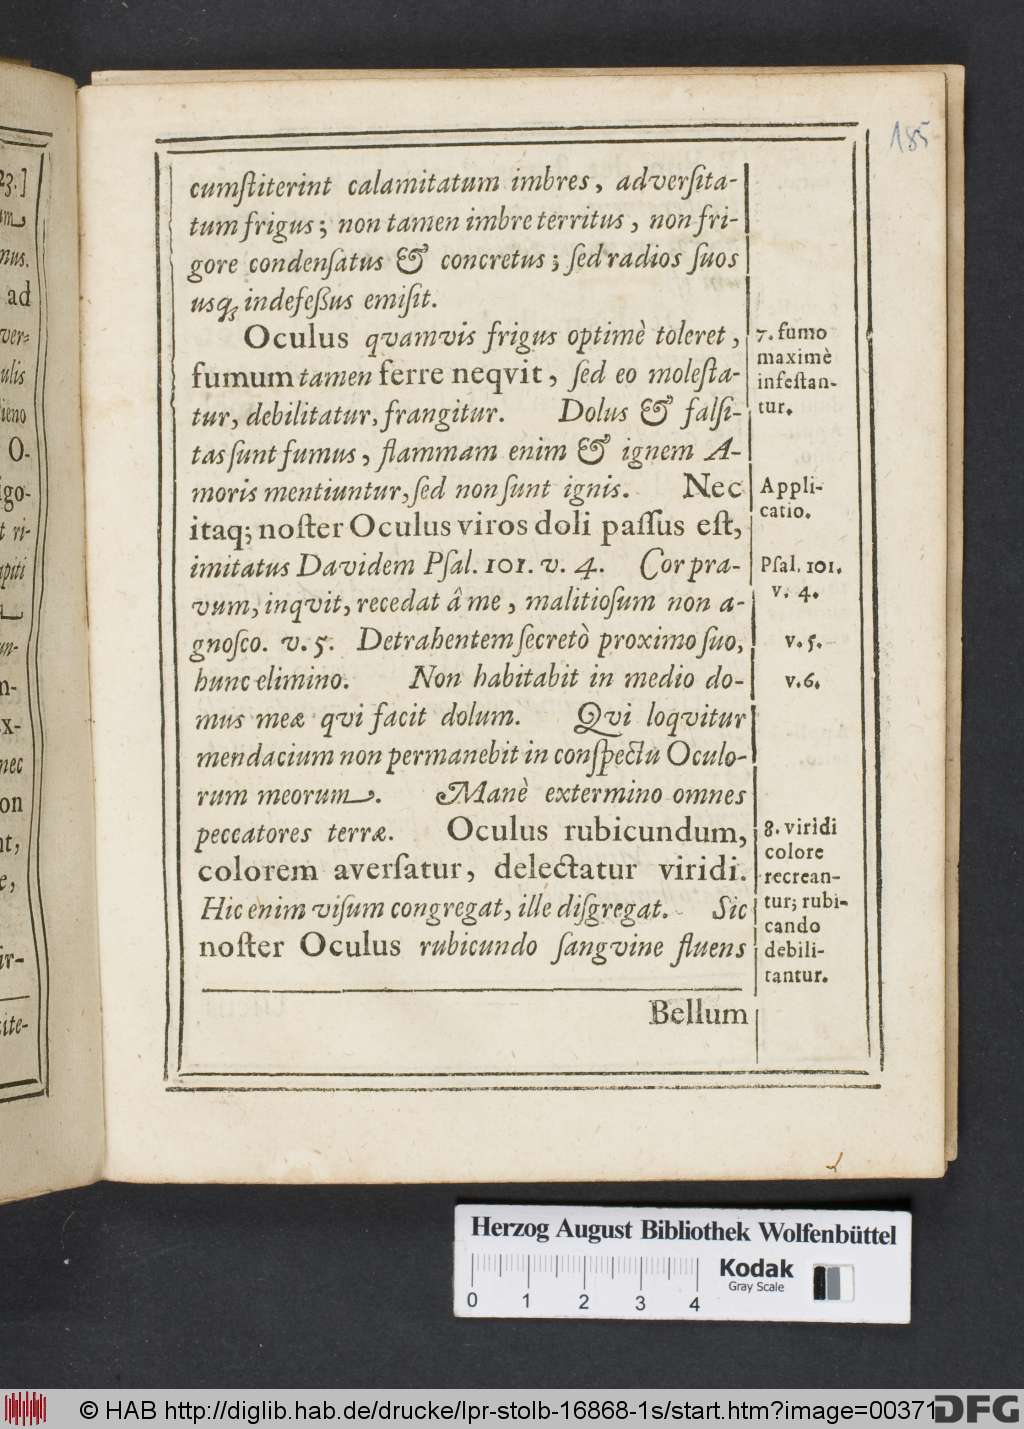 185
cumſtiterint calamitatum imbres, adverſita-
tum frigus; non tamen imbre territus, non fri-
gore condenſatus & concretus; ſed radios ſuos
usq; indefeßus emiſit.
Oculus qvamvis frigus optimè toleret,
fumum tamen ferre neqvit, ſed eo moleſta-
tur, debilitatur, frangitur. Dolus & falſi-
tas ſunt fumus, flammam enim & ignem A-
moris mentiuntur, ſed non ſunt ignis. Nec
itaq; noſter Oculus viros doli paſſus eſt,
imitatus Davidem Pſal. 101. v. 4. Cor pra-
vum, inqvit, recedat â me, malitioſum non a-
gnoſco. v. 5. Detrahentem ſecretò proximo ſuo,
hunc elimino. Non habitabit in medio do-
mus meæ qvi facit dolum. Qvi loqvitur
mendacium non permanebit in conſpectu Oculo-
rum meorum. Manè extermino omnes
peccatores terræ. Oculus rubicundum,
colorem averſatur, delectatur viridi.
Hic enim viſum congregat, ille diſgregat. Sic
noſter Oculus rubicundo ſangvine fluens
Bellum
7. fumo
maximè
infeſtan-
tur.
Appli-
catio.
Pſal. 101.
v. 4.
v. 5.
v. 6.
8. viridi
colore
recrean-
tur; rubi-
cando
debili-
tantur.
23.]
mus.
ad
ver-
ulis
O-
igo-
t ri-
un-
n-
x-
nec
on
nt,
e,
ir-
cite-
Herzog August Bibliothek Wolfenbüttel
0 1 2 3 4
Kodak
Gray Scale
© HAB http://diglib.hab.de/drucke/lpr-stolb-16868-1s/start.htm?image=00371
DFG